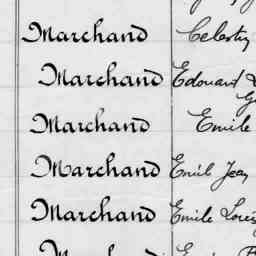 Marchand Celestin
Marchand Edouard
Marchand Emile
Marchand Emile Jean
Marchand Emile Louis
Marchand